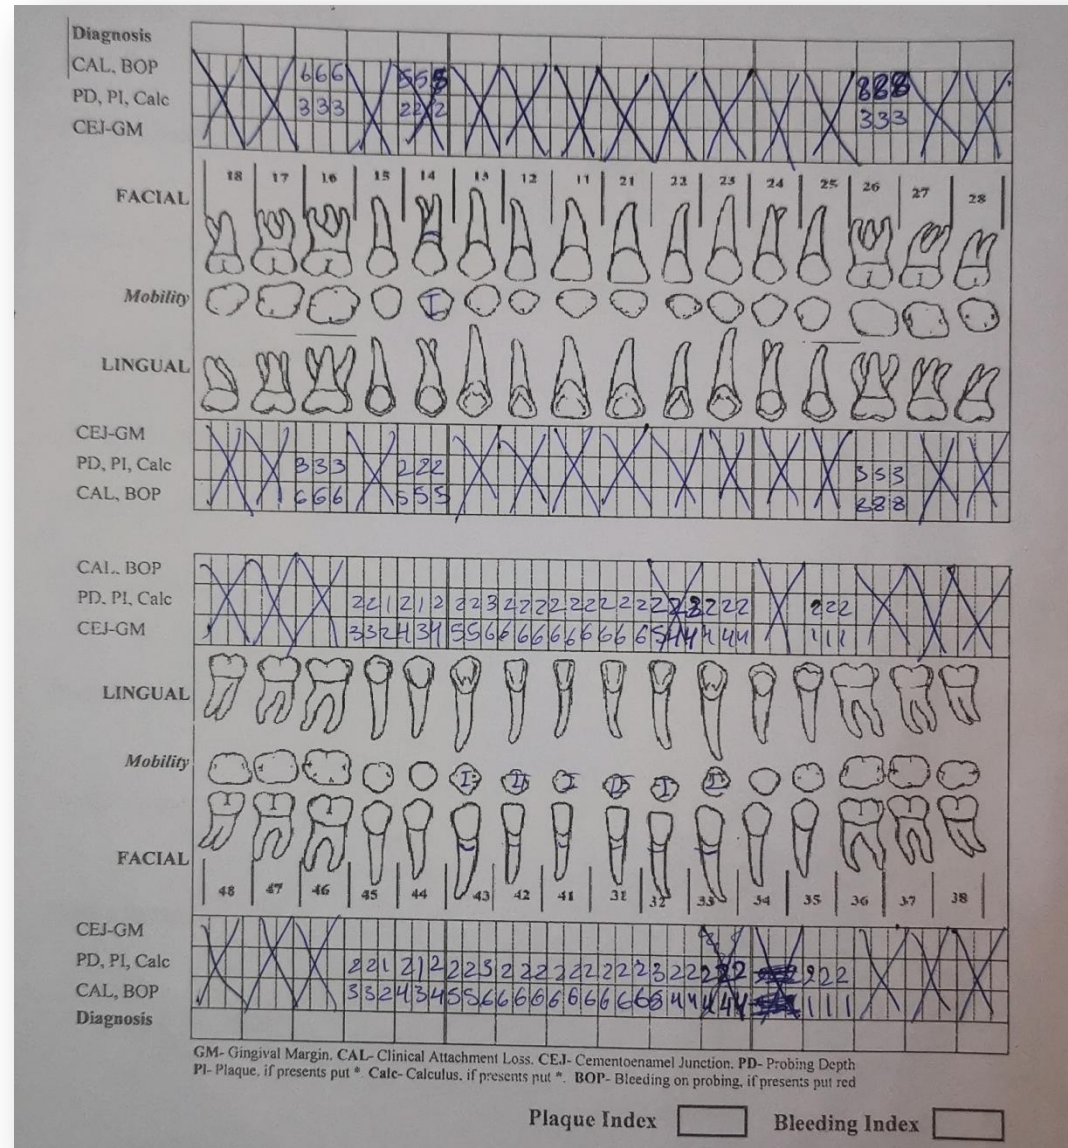 Diagnosis
CAL, BOP 666 555 888
PD, PI, Calc 333 222 333
CEJ-GM
FACIAL 18 17 16 15 14 13 12 11 21 22 23 24 25 26 27 28
Mobility I
LINGUAL
CEJ-GM
PD, PI, Calc 333 222 353
CAL, BOP 666 555 888
CAL. BOP
PD. PI, Calc 221 212 223 222 222 222 222
CEJ-GM 332 434 556 666 666 111
LINGUAL
Mobility I I I
FACIAL
48 47 46 45 44 43 42 41 31 32 33 34 35 36 37 38
CEJ-GM
PD, PI, Calc 221 212 223 222 222 222 222
CAL, BOP 332 434 556 666 666 111
Diagnosis
GM- Gingival Margin. CAL- Clinical Attachment Loss. CEJ- Cementoenamel Junction. PD- Probing Depth
PI- Plaque. if presents put *. Calc- Calculus. if presents put *. BOP- Bleeding on probing, if presents put red
Plaque Index Bleeding Index